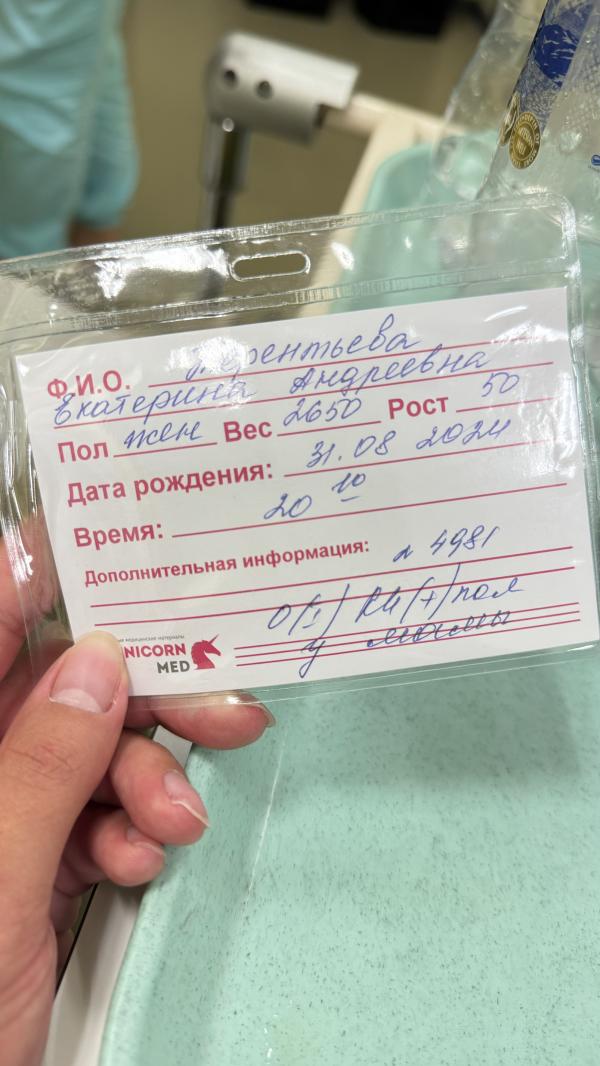 Ф.И.О. Терентьева
Екатерина Андреевна
Пол жен Вес 2650 Рост 50
Дата рождения: 31.08 2024
Время: 20 10
Дополнительная информация: л 4981
O(I) Rh(+) пол
у мамы
медицинские материалы
UNICORN
MED